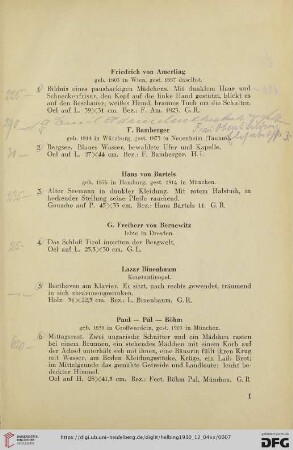 Friedrich von Amerling
geb. 1803 in Wien, gest. 1887 daselbst.
1 Bildnis eines pausbackigen Mädchens. Mit dunklen Haar und
Schneckenfrisur, den Kopf auf die linke Hand gestützt, blickt es
auf den Beschauer, weißes Hemd, braunes Tuch um die Schulter.
Oel auf L. 39)(31 cm. Bez.: F. Am. 1823. G. R.
F. Bamberger
geb. 1814 in Würzburg, gest. 1873 in Neuenhain (Taunus).
2 Bergsee. Blaues Wasser, bewaldete Ufer und Kapelle.
Oel auf L. 37)(44 cm. Bez.: F. Bamberger.
Hans von Bartels
geb. 1856 in Hamburg, gest. 1914 in München.
3 Alter Seemann in dunkler Kleidung. Mit rotem Halstuch, in
hockender Stellung seine Pfeife rauchend.
Gouache auf P. 45)(33 cm. Bez.: Hans Bartels 11. G. R.
G. Freiherr von Bernewitz
lebte in Dresden.
4 Das Schloß Tirol inmitten der Bergwelt.
Oel auf L. 25,5)(30 cm. G. L.
Lazar Binenbaum
Konstantinopel.
5 Beethoven am Klavier. Er sitzt, nach rechts gewendet, träumend
in sich
Holz. 31)(22,5 cm. Bez.: L. Binenbaum. G. R.
Paul — Pál — Böhm
geb. 1839 in Großwardein, gest. 1905 in München.
6 Mittagsrast. Zwei ungarische Schnitter und ein Mädchen rasten
bei einem Brunnen, ein stehendes Mädchen mit einem Korb auf
der Achsel unterhält sich mit ihnen, eine Bäuerin füllt ihren Krug
mit Wasser, am Boden Kleidungsstücke, Krüge, ein Laib Brot;
im Mittelgrunde das gemähte Getreide und Landleute; leicht be-
deckter Himmel.
Oel auf H. 28)(41,5 cm. Bez.: Fect. Böhm Pál, München. G. R.
1
https://digi.ub.uni-heidelberg.de/diglit/helbing1930_12_04xx/0007
© Universitätsbibliothek Heidelberg
DFG